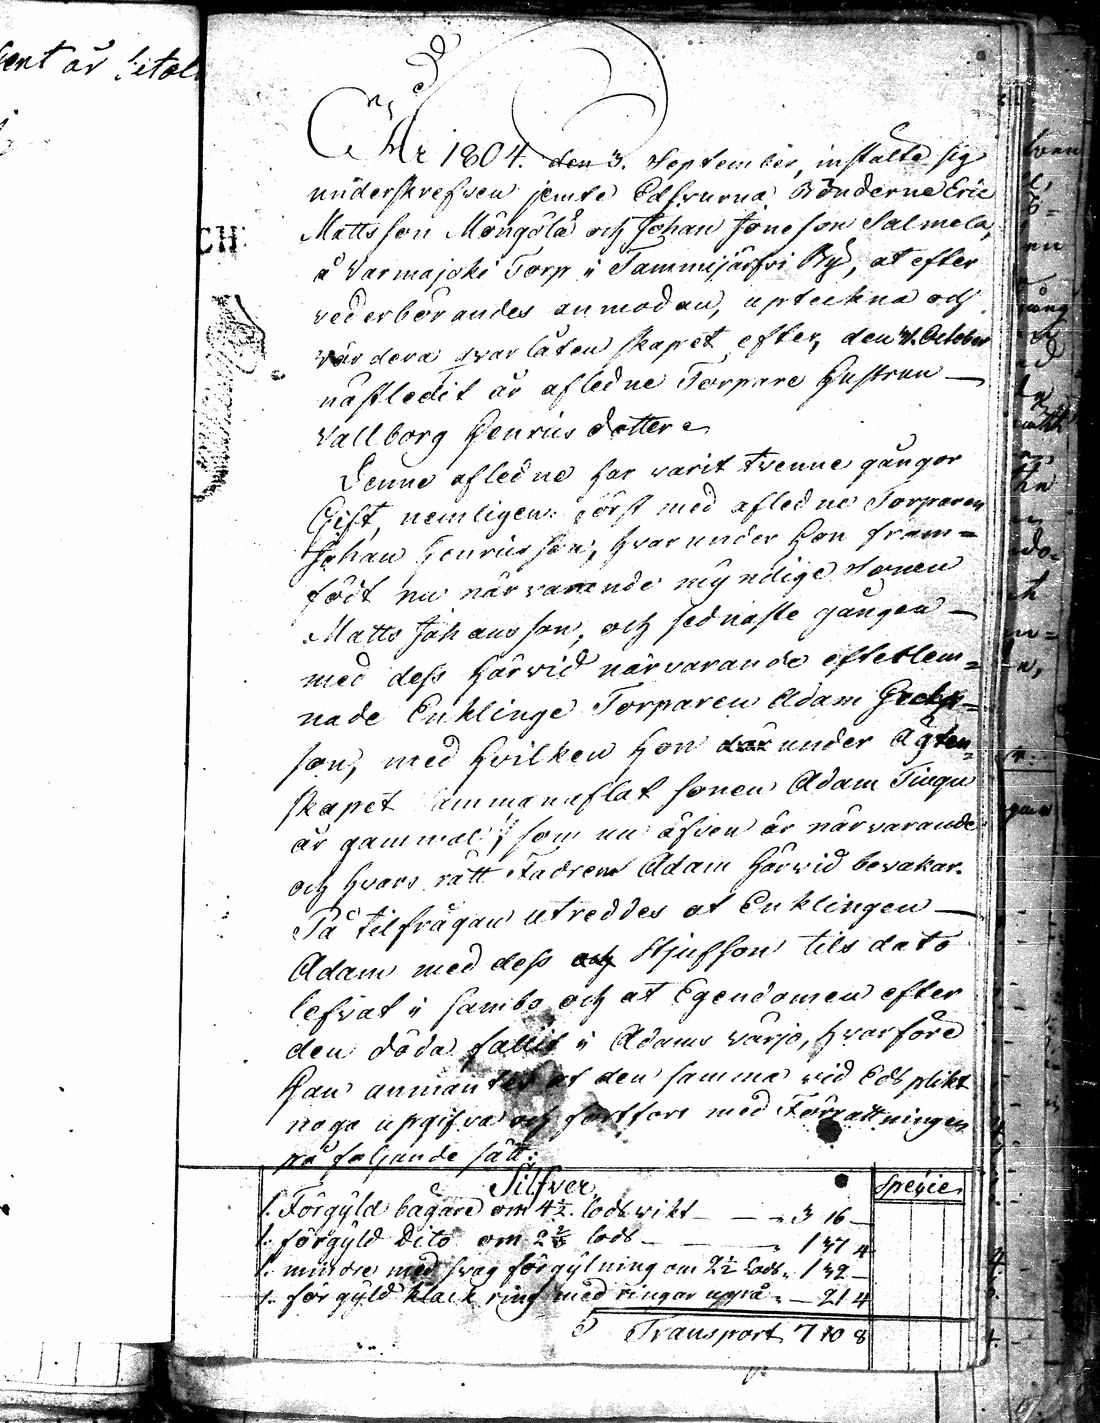 ent är betal
CH
År 1804. den 3. September, instälte sig
underskrefven jemte Edsvurna, Bönderne Eric
Mattsson Mångölä och Johan Jonsson Salmela,
å Varmajoki Torp i Tammijärfvi By, at efter
vederbörandes anmodan, upteckna och
värdera qvarlåtenskapet efter, den 21. October
nästledit år afledne Torpare Hustrun —
Vallborg Henricsdotter
Denne afledne har varit tvenne gångor
Gift, nemligen: först med afledne Torparen
Johan Henricsson, hvarunder hon fram=
födt nu närvarande myndige Sonen
Matts Johansson, och sednaste gången —
med dess härvid närvarande efterlem=
nade Enklinge Torparen Adam
son, med hvilken hon under Ägten=
skapet sammanaflat sonen Adam Tiugu
år gammal, som nu äfven är närvarande
och hvars rätt Fadren Adam härvid bevakar.
På tilfrågan utreddes at Enklingen —
Adam med dess och Stjufson tils dato
lefvat i sambo och at Egendomen efter
den döda fallit i Adams värjo, hvarföre
han anmantes at den samma vid Edsplikt
noga upgifva och fortfors med Förrättningen
på följande sätt:
Silfver Specie
1. Förgyld bägare om 4½ lods vikt — — 3 16 —
1. förgyld Dito om 2⅔ lod — 1 37 4
1. mindre med svag förgylning om 2½ lod 1 39 —
1. förgyld klack ring med ringar uppå — 21 4
Transport 7 10 8